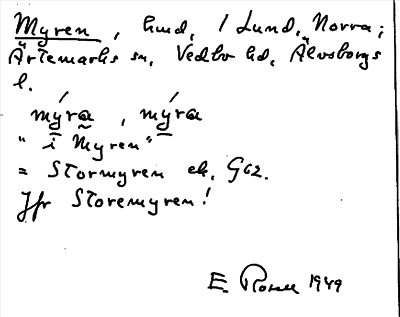 Myren, hmd, / Lund, Norra;
Ärtemarks sn, Vedbo hd, Älvsborgs
l.
mýra, mýra
"i Myren"
= Stormyren ek. G62.
Jfr Storemyren!
E. Rosell 1949